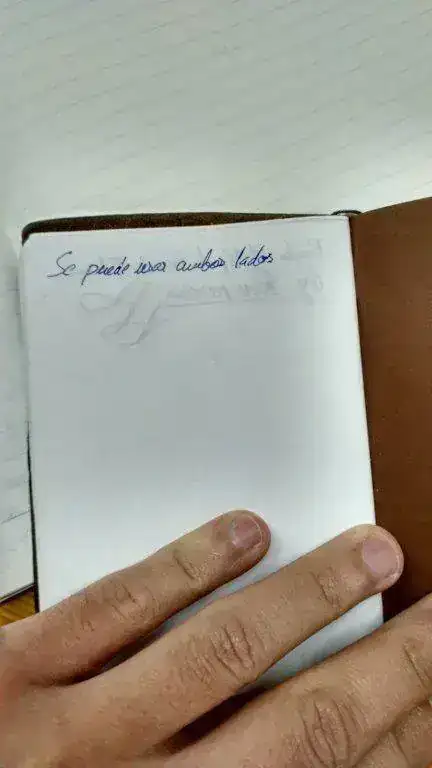 Se puede usar ambos lados